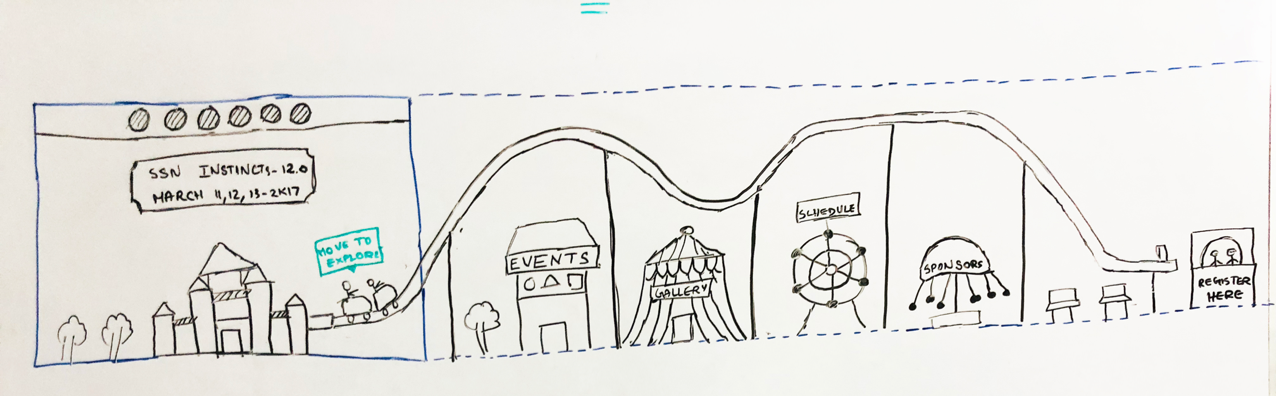 SSN INSTINCTS-12.0
MARCH 11,12,13-2K17
MOVE TO
EXPLORE
EVENTS
GALLERY
SCHEDULE
SPONSORS
REGISTER
HERE